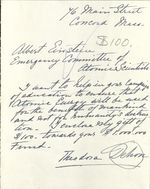 76 Main Street
Concord Mass.
$100.
Albert Einstein
Emergency Committee of
Atomic Scientists
I want to help in your campaign
of education to ensure that
Atomic Energy will be used
for the benefit of mankind
and not for humanity's destruc-
tion. I enclose my gift of
$100. towards your $1,000,000
Fund.
Theodora